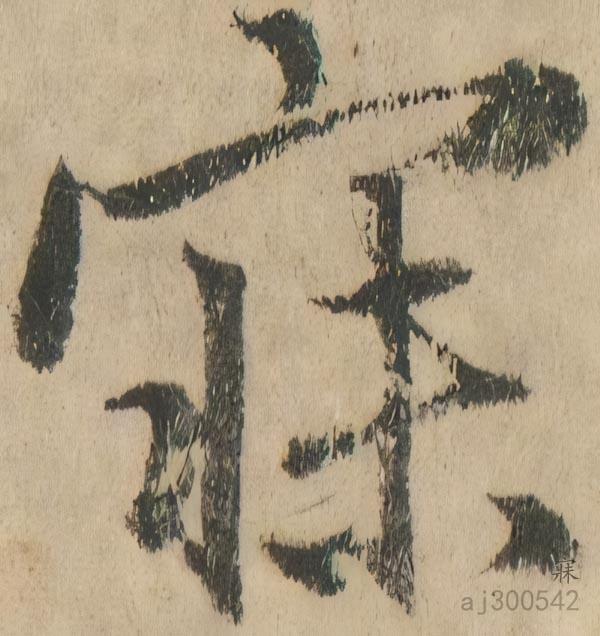 寐
寐
aj300542